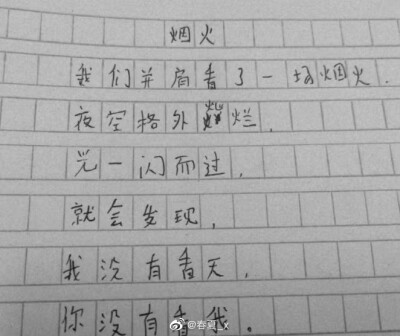 烟火
我们并肩看了一场烟火.
夜空格外灿烂.
光一闪而过,
就会发现,
我没有看天,
你没有看我.
@春夏_x